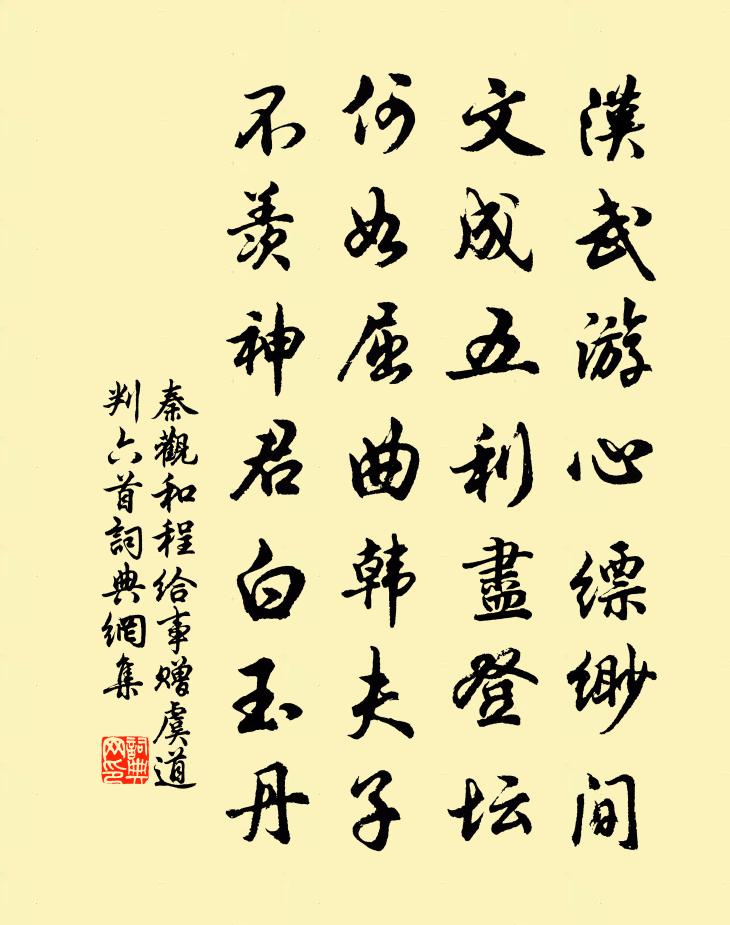 漢武游心縹緲间
文成五利盡登坛
何如屈曲韩夫子
不羨神君白玉丹
秦觀和程给事赠虞道
判六首詞典網集
詞典
网印